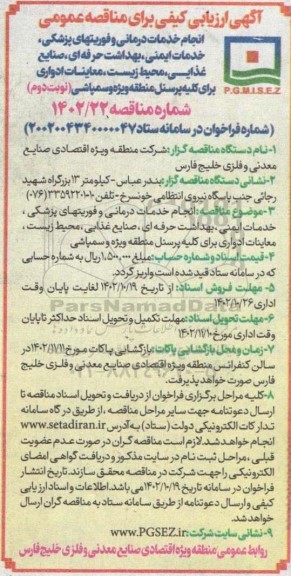 آگهی ارزیابی کیفی برای مناقصه عمومی
انجام خدمات درمانی و فوریتهای پزشکی،
خدمات ایمنی، بهداشت حرفه ای، صنایع
غذایی، محیط زیست، معاینات ادواری
برای کلیه پرسنل منطقه ویژه و سمپاشی (نوبت دوم)
P.G.M.I.S.E.Z
شماره مناقصه ۱۴۰۲/۲۲
(شماره فراخوان در سامانه ستاد ۲۰۰۲۰۰۴۳۴۰۰۰۰۰۴۷)
۱-نام دستگاه مناقصه گزار: شرکت منطقه ویژه اقتصادی صنایع
معدنی و فلزی خلیج فارس
۲-نشانی دستگاه مناقصه گزار: بندرعباس-کیلومتر ۱۳ بزرگراه شهید
رجائی جنب پاسگاه نیروی انتظامی خونسرخ-تلفن:
۳-موضوع مناقصه: انجام خدمات درمانی و فوریتهای پزشکی،
خدمات ایمنی، بهداشت حرفه ای، صنایع غذایی، محیط زیست،
معاینات ادواری برای کلیه پرسنل منطقه ویژه و سمپاشی
۴-قیمت اسناد و شماره حساب: مبلغ ۱،۵۰۰،۰۰۰ ریال به شماره حسابی
که در سامانه ستاد قید شده است واریز گردد.
۵- مهلت فروش اسناد: از تاریخ ۱۴۰۲/۱۰/۱۹ لغایت پایان وقت
اداری ۱۴۰۲/۱۰/۲۶
۶-مهلت تحویل اسناد: مهلت تکمیل و تحویل اسناد حداکثر تا پایان
وقت اداری مورخ ۱۴۰۲/۱۱/۱۰
۷-زمان و محل بازگشایی پاکات: بازگشایی پاکات مورخ ۱۴۰۲/۱۱/۱۱ در
سالن کنفرانس منطقه ویژه اقتصادی صنایع معدنی و فلزی خلیج
فارس صورت خواهد پذیرفت.
۸-کلیه مراحل برگزاری فراخوان از دریافت و تحویل اسناد مناقصه تا
ارسال دعوتنامه جهت سایر مراحل مناقصه، از طریق درگاه سامانه
تدارکات الکترونیکی دولت (ستاد) به آدرس www.setadiran.ir
انجام خواهد شد. لازم است مناقصه گران در صورت عدم عضویت
قبلی، مراحل ثبت نام در سایت مذکور و دریافت گواهی امضای
الکترونیکی را جهت شرکت در مناقصه محقق سازند. تاریخ انتشار
فراخوان در سامانه تاریخ ۱۴۰۲/۱۰/۱۹ می باشد. اطلاعات و اسناد ارزیابی
کیفی و ارسال دعوتنامه از طریق سامانه ستاد به مناقصه گران ارسال
خواهد شد.
۹-نشانی سایت شرکت: www.PGSEZ.ir
روابط عمومی منطقه ویژه اقتصادی صنایع معدنی و فلزی خلیج فارس